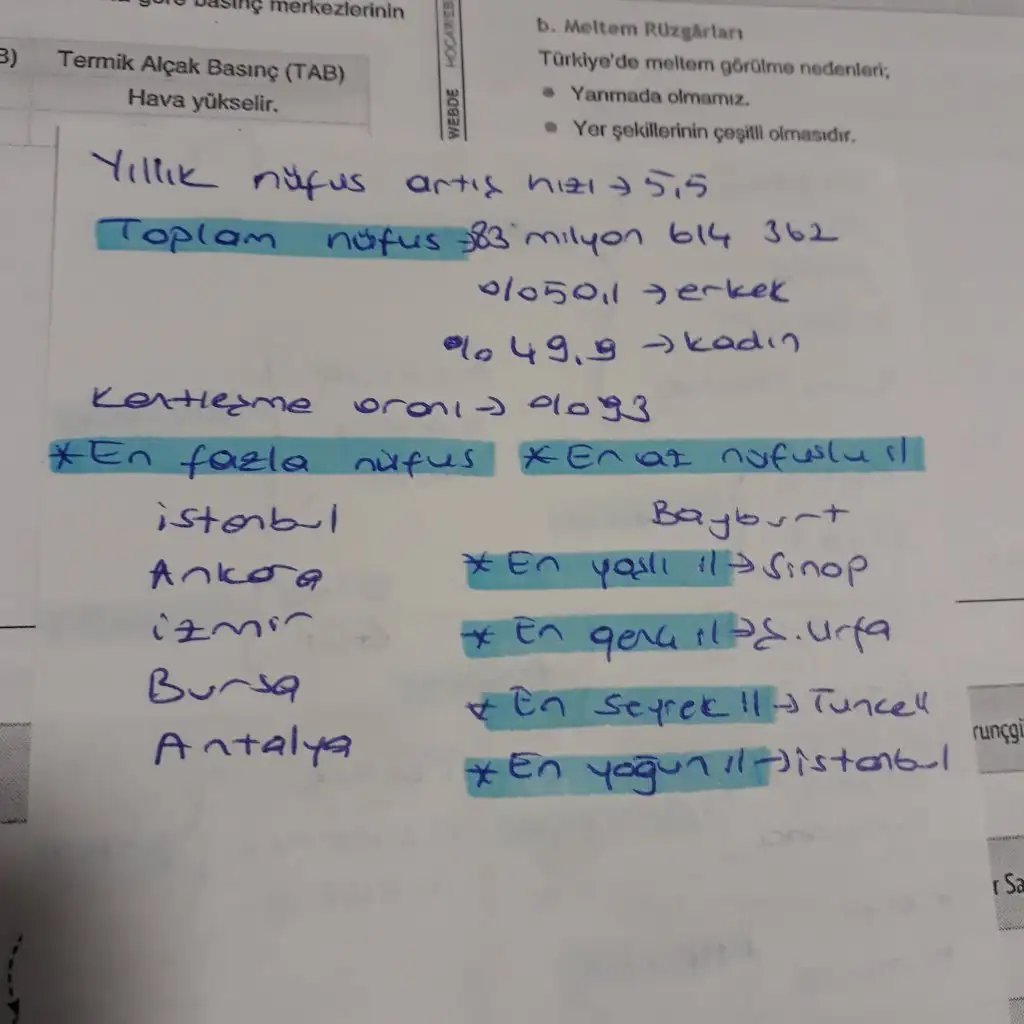 göre basınç merkezlerinin
B) Termik Alçak Basınç (TAB)
Hava yükselir.
WEBDE HOCA
b. Meltem Rüzgârları
Türkiye'de meltem görülme nedenleri;
• Yarımada olmamız.
• Yer şekillerinin çeşitli olmasıdır.
Yıllık nüfus artış hızı → 5,5
Toplam nüfus → 83 milyon 614 362
%50,1 → erkek
%49,9 → kadın
Kentleşme oranı → %93
* En fazla nüfus
* En az nüfuslu il
istanbul
Bayburt
Ankara
* En yaşlı il → Sinop
izmir
* En genç il → Ş.Urfa
Bursa
* En Seyrek il → Tunceli
Antalya
* En yoğun il → istanbul
runçgi
r Sa